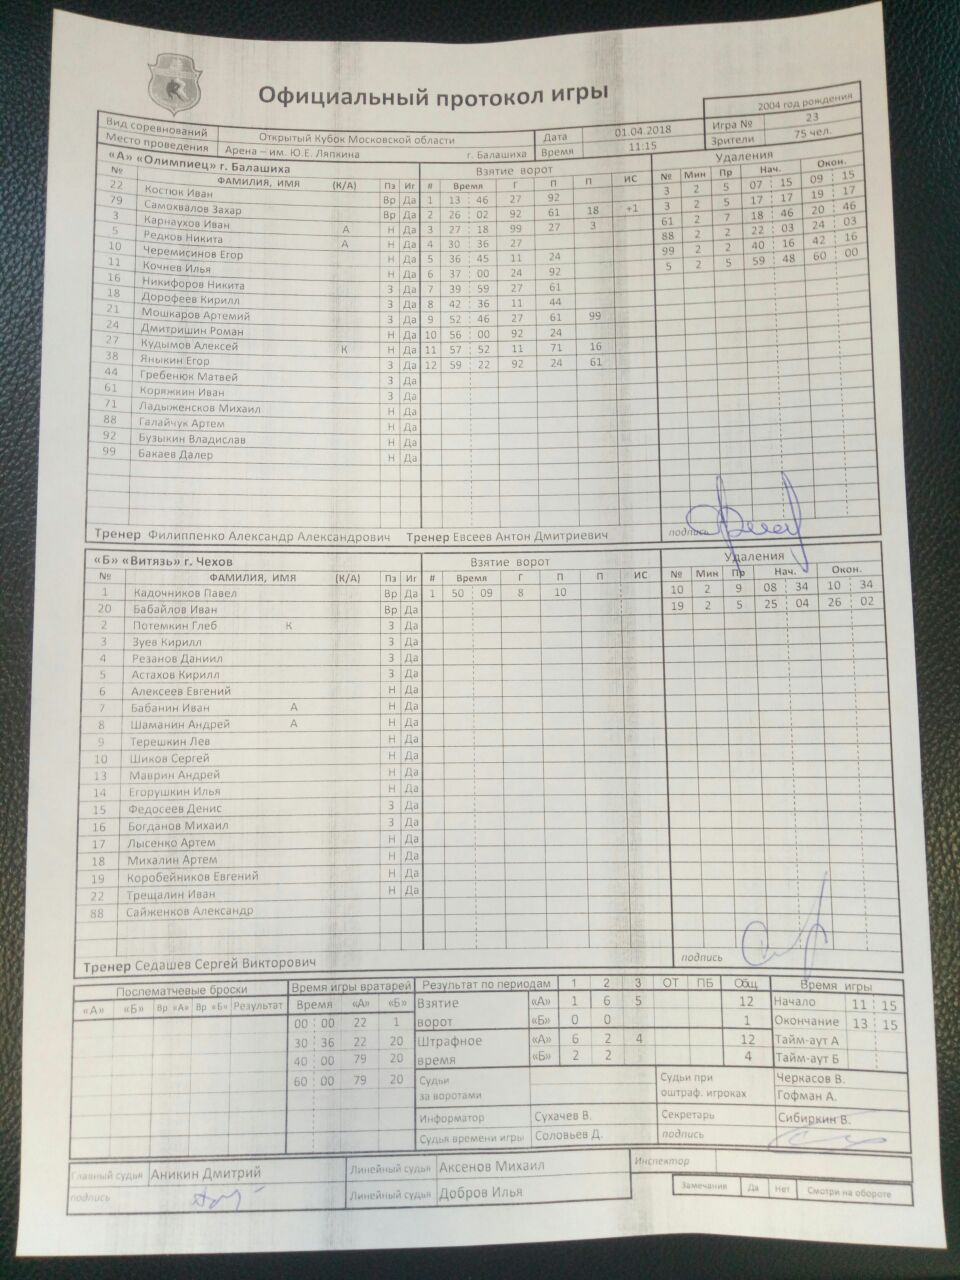 Официальный протокол игры
2004 год рождения
Вид соревнований Открытый Кубок Московской области Дата 01.04.2018 Игра № 23
Место проведения Арена – им. Ю.Е. Ляпкина г. Балашиха Время 11:15 Зрители 75 чел.
«А» «Олимпиец» г. Балашиха Взятие ворот Удаления
№ ФАМИЛИЯ, ИМЯ (К/А) Пз Иг # Время Г П П ИС № Мин Пр Нач. Окон.
22 Костюк Иван Вр Да 1 13 : 46 27 92 3 2 5 07 : 15 09 : 15
79 Самохвалов Захар Вр Да 2 26 : 02 92 61 18 +1 3 2 5 17 : 17 19 : 17
3 Карнаухов Иван А Н Да 3 27 : 18 99 27 3 61 2 7 18 : 46 20 : 46
5 Редков Никита А Н Да 4 30 : 36 27 88 2 2 22 : 03 24 : 03
10 Черемисинов Егор Н Да 5 36 : 45 11 24 99 2 2 40 : 16 42 : 16
11 Кочнев Илья Н Да 6 37 : 00 24 92 5 2 5 59 : 48 60 : 00
16 Никифоров Никита З Да 7 39 : 59 27 61
18 Дорофеев Кирилл З Да 8 42 : 36 11 44
21 Мошкаров Артемий З Да 9 52 : 46 27 61 99
24 Дмитришин Роман Н Да 10 56 : 00 92 24
27 Кудымов Алексей К Н Да 11 57 : 52 11 71 16
38 Яныкин Егор З Да 12 59 : 22 92 24 61
44 Гребенюк Матвей З Да
61 Коряжкин Иван З Да
71 Ладыженсков Михаил Н Да
88 Галайчук Артем Н Да
92 Бузыкин Владислав Н Да
99 Бакаев Далер Н Да
Тренер Филиппенко Александр Александрович Тренер Евсеев Антон Дмитриевич подпись
«Б» «Витязь» г. Чехов Взятие ворот Удаления
№ ФАМИЛИЯ, ИМЯ (К/А) Пз Иг # Время Г П П ИС № Мин Пр Нач. Окон.
1 Кадочников Павел Вр Да 1 50 : 09 8 10 10 2 9 08 : 34 10 : 34
20 Бабайлов Иван Вр Да 19 2 5 25 : 04 26 : 02
2 Потемкин Глеб К З Да
3 Зуев Кирилл З Да
4 Резанов Даниил З Да
5 Астахов Кирилл З Да
6 Алексеев Евгений Н Да
7 Бабанин Иван А Н Да
8 Шаманин Андрей А Н Да
9 Терешкин Лев Н Да
10 Шиков Сергей Н Да
13 Маврин Андрей Н Да
14 Егорушкин Илья Н Да
15 Федосеев Денис З Да
16 Богданов Михаил З Да
17 Лысенко Артем Н Да
18 Михалин Артем Н Да
19 Коробейников Евгений Н Да
22 Трещалин Иван Н Да
88 Сайженков Александр
Тренер Седашев Сергей Викторович подпись
Послематчевые броски Время игры вратарей Результат по периодам 1 2 3 ОТ ПБ Общ. Время игры
«А» «Б» Вр «А» Вр «Б» Результат Время «А» «Б» Взятие ворот «А» 1 6 5 12 Начало 11 : 15
00 : 00 22 1 «Б» 0 0 1 Окончание 13 : 15
30 : 36 22 20 Штрафное время «А» 6 2 4 12 Тайм-аут А
40 : 00 79 20 «Б» 2 2 4 Тайм-аут Б
60 : 00 79 20 Судьи за воротами Судьи при оштраф. игроках Черкасов В.
Гофман А.
Информатор Сухачев В. Секретарь Сибиркин В.
Судья времени игры Соловьев Д. подпись
Главный судья Аникин Дмитрий Линейный судья Аксенов Михаил Инспектор
подпись Линейный судья Добров Илья Замечания Да Нет Смотри на обороте